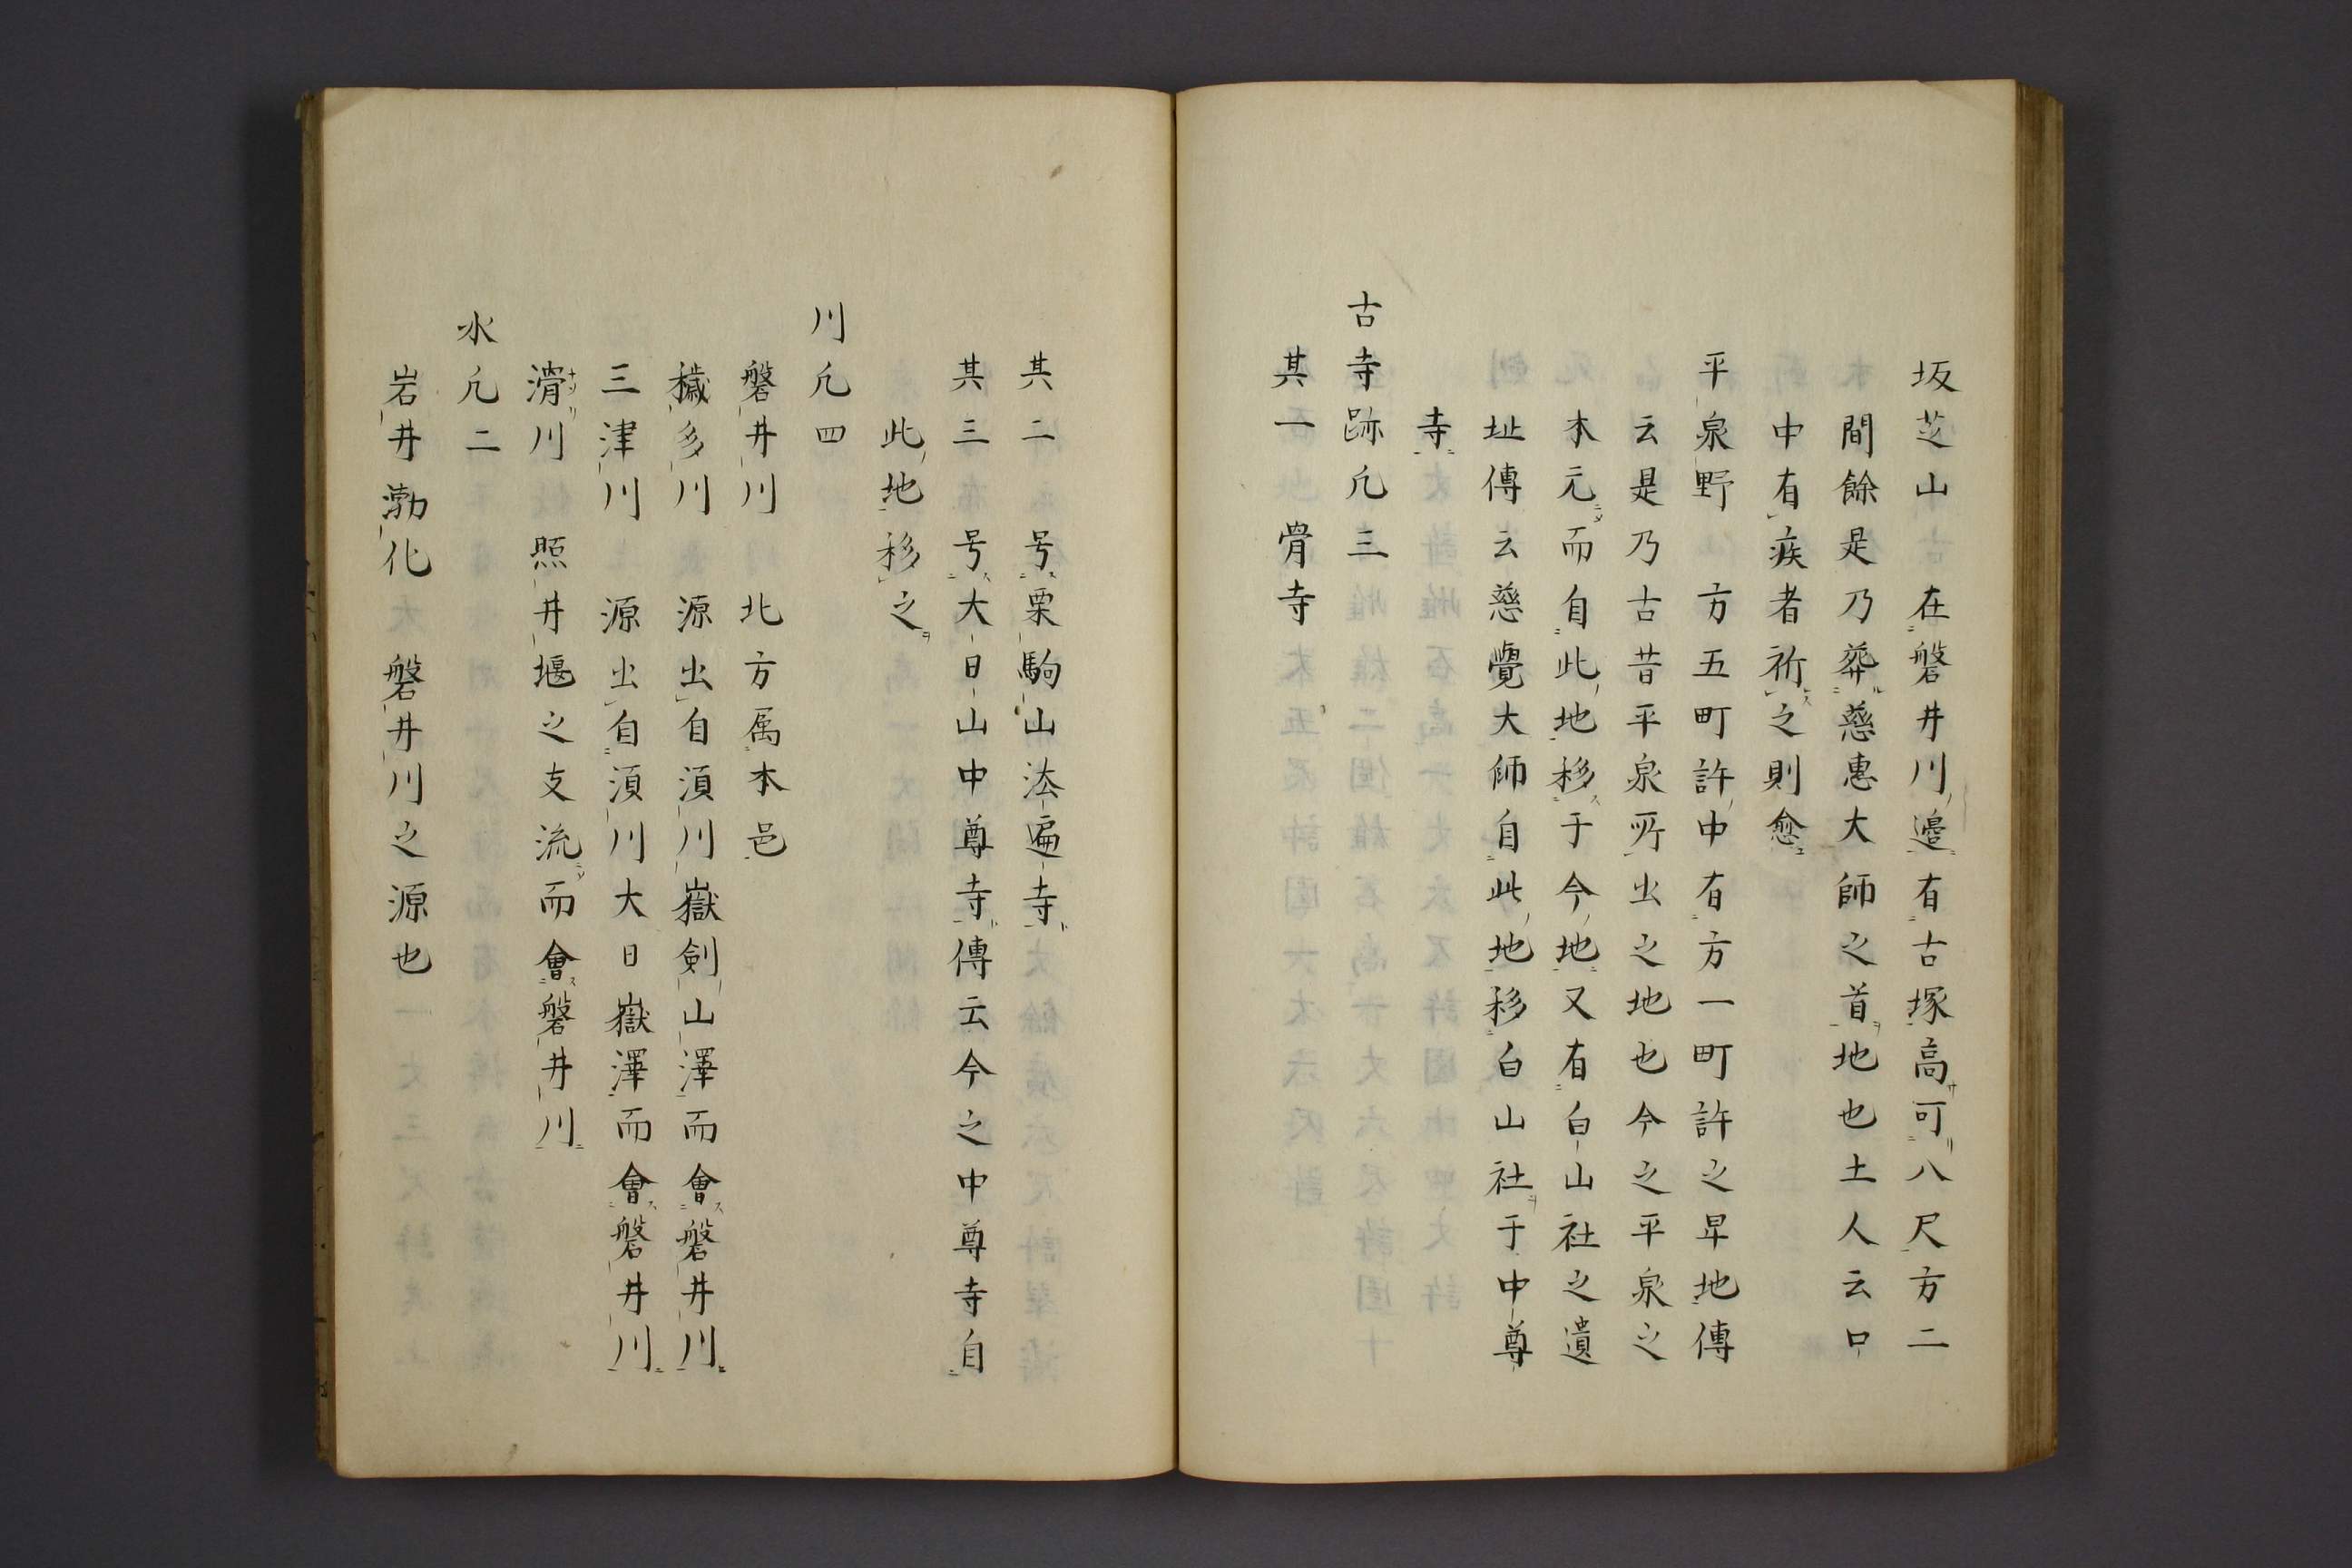 坂芝山 在磐井川邉有古塚高可八尺方二
間餘是乃葬慈惠大師之首地也土人云口
中有疾者祈之則愈
平泉野 方五町許中有方一町許之早地傳
云是乃古昔平泉所出之地也今之平泉之
本元而自此地移于今地又有白山社之遺
址傳云慈覺大師自此地移白山社于中尊
寺
古寺跡凢三
其一 骨寺
其二 号栗駒山法遍寺
其三 号大日山中尊寺傳云今之中尊寺自
此地移之
川凢四
磐井川 北方属本邑
穢多川 源出自湏川嶽剣山澤而會磐井川
三津川 源出自湏川大日嶽澤而會磐井川
滑川 照井堰之支流而會磐井川
水凢二
岩井渤化 磐井川之源也